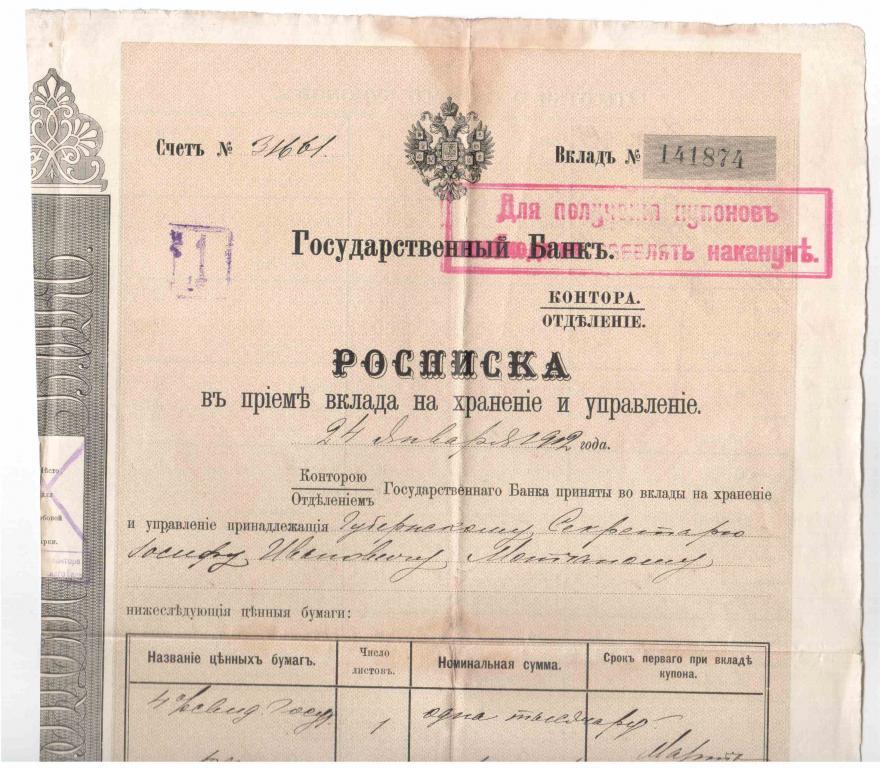 Счетъ № 31661.
Вкладъ № 141874
Для полученія купоновъ
наканунѣ.
Государственный Банкъ.
КОНТОРА.
ОТДѢЛЕНІЕ.
РОСПИСКА
въ пріемѣ вклада на храненіе и управленіе.
24 Января 1902 года.
Конторою
Отдѣленіемъ Государственнаго Банка приняты во вклады на храненіе
и управленіе принадлежащія Губернскому Секретарю
Іосифу Ивановичу
нижеслѣдующія цѣнныя бумаги:
Названіе цѣнныхъ бумагъ.
Число листовъ.
Номинальная сумма.
Срокъ перваго при вкладѣ купона.
4% свид. Госуд.
1
одна тысяча руб.
Мартъ